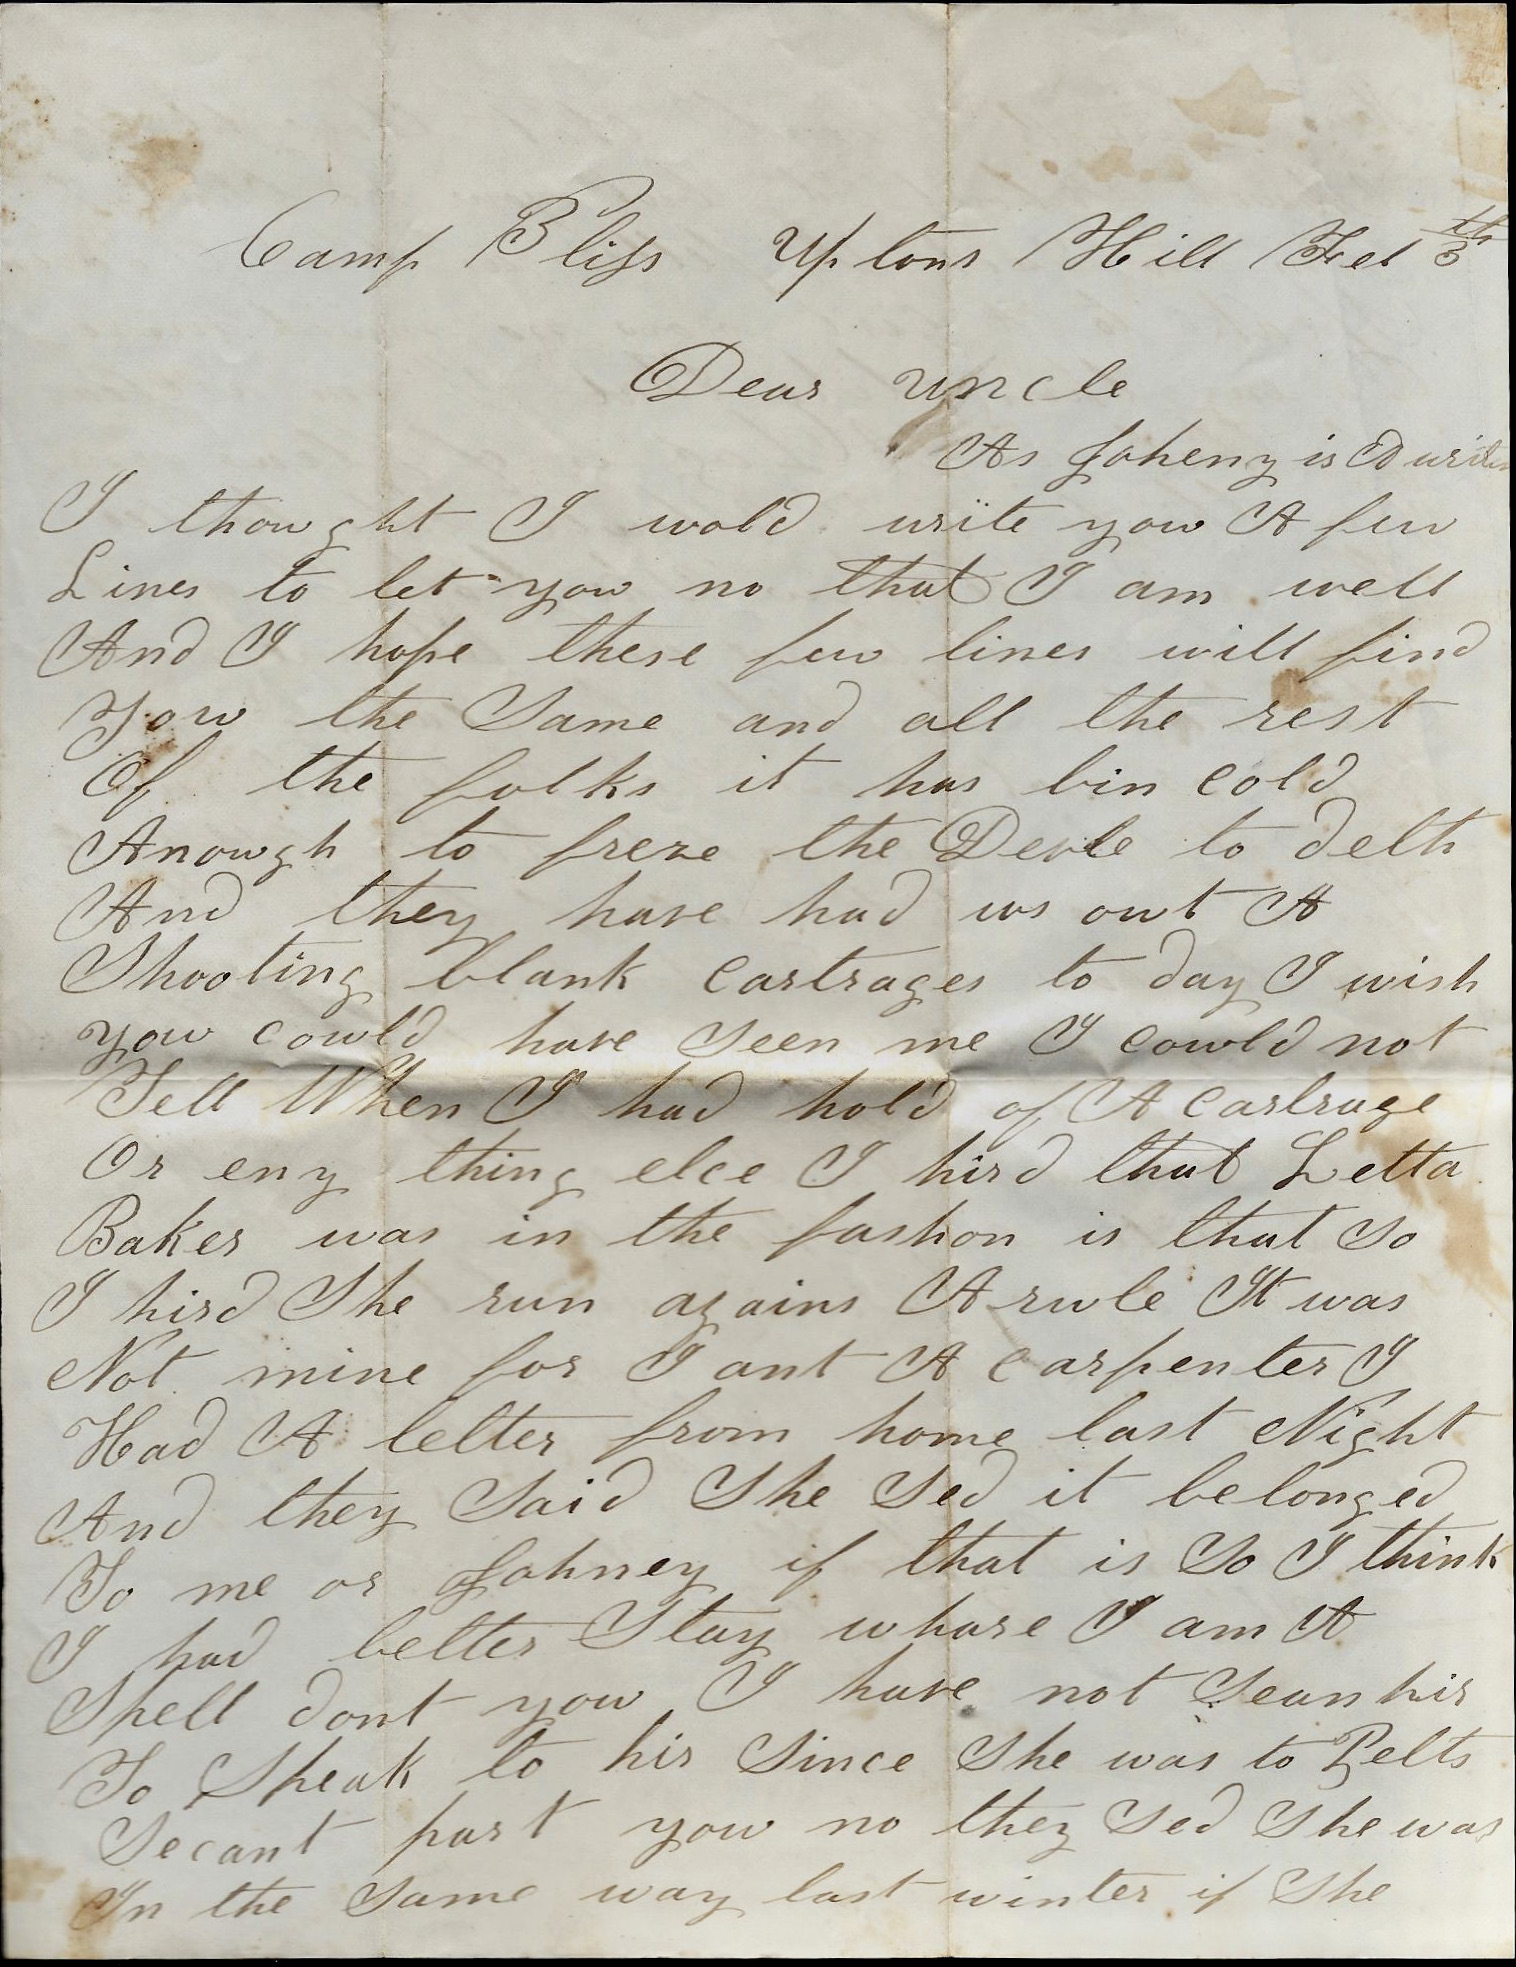 Camp Bliss Uptons Hill Feb 3th
Dear Uncle
As Joheny is A writen
I thowght I wold write yow A few
Lines to let yow no that I am well
And I hope these few lines will find
Yow the Same and all the rest
Of the folks it has bin cold
Anowgh to freze the Devle to deth
And they have had us owt A
Shooting blank cartrages to day I wish
yow cowld have seen me I cowld not
Tell When I had hold of A cartrage
Or eny thing elce I hird that Letta
Baker was in the fashon is that so
I hird She run agains A rule It was
Not mine for I ant A carpenter I
Had A letter from home last Night
And they Said She Sed it belonged
To me or Johney if that is So I think
I had better Stay whare I am A
Spell dont yow I have not Sean hir
To Speak to hir Since She was to Pelts
Secant part yow no they Sed She was
In the Same way last winter if She